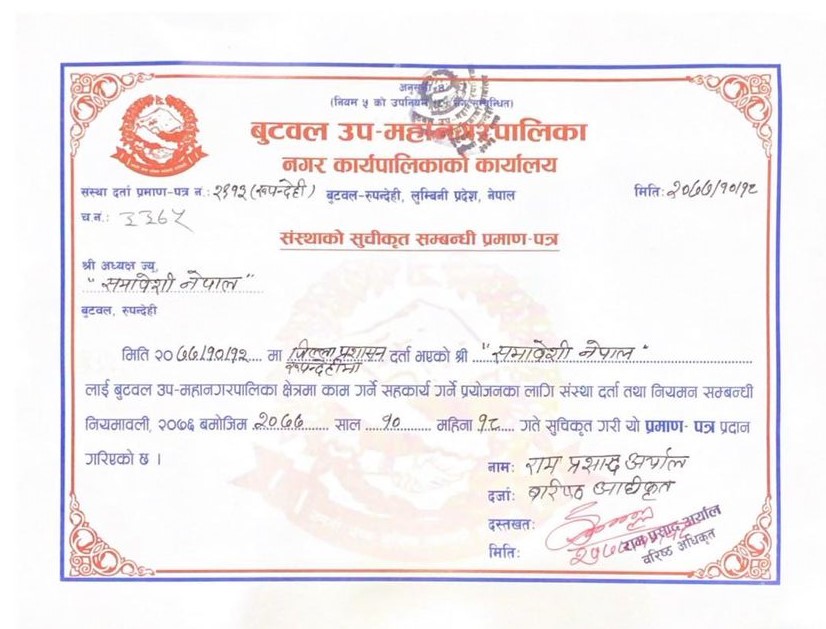 अनुसूची-४
(नियम ५ को उपनियम सँग सम्बन्धित)
बुटवल उप-महानगरपालिका
नगर कार्यपालिकाको कार्यालय
संस्था दर्ता प्रमाण-पत्र न.: २९१२ (रूपन्देही) बुटवल-रुपन्देही, लुम्बिनी प्रदेश, नेपाल मिति: २०७७/१०/१८
च.नं.: ३३६५
संस्थाको सुचीकृत सम्बन्धी प्रमाण-पत्र
श्री अध्यक्ष ज्यू,
"समावेशी नेपाल"
बुटवल, रुपन्देही
मिति २०७७/१०/१२ मा जिल्ला प्रशासन रुपन्देहीमा दर्ता भएको श्री "समावेशी नेपाल"
लाई बुटवल उप-महानगरपालिका क्षेत्रमा काम गर्ने सहकार्य गर्ने प्रयोजनका लागि संस्था दर्ता तथा नियमन सम्बन्धी
नियमावली, २०७६ बमोजिम २०७७ साल १० महिना १८ गते सुचिकृत गरी यो प्रमाण- पत्र प्रदान
गरिएको छ ।
नाम: राम प्रशाद अर्याल
दर्जा: वारिष्ठ आधीकृत
दस्तखत:
राम प्रसाद अर्याल
मिति:
वरिष्ठ अधिकृत